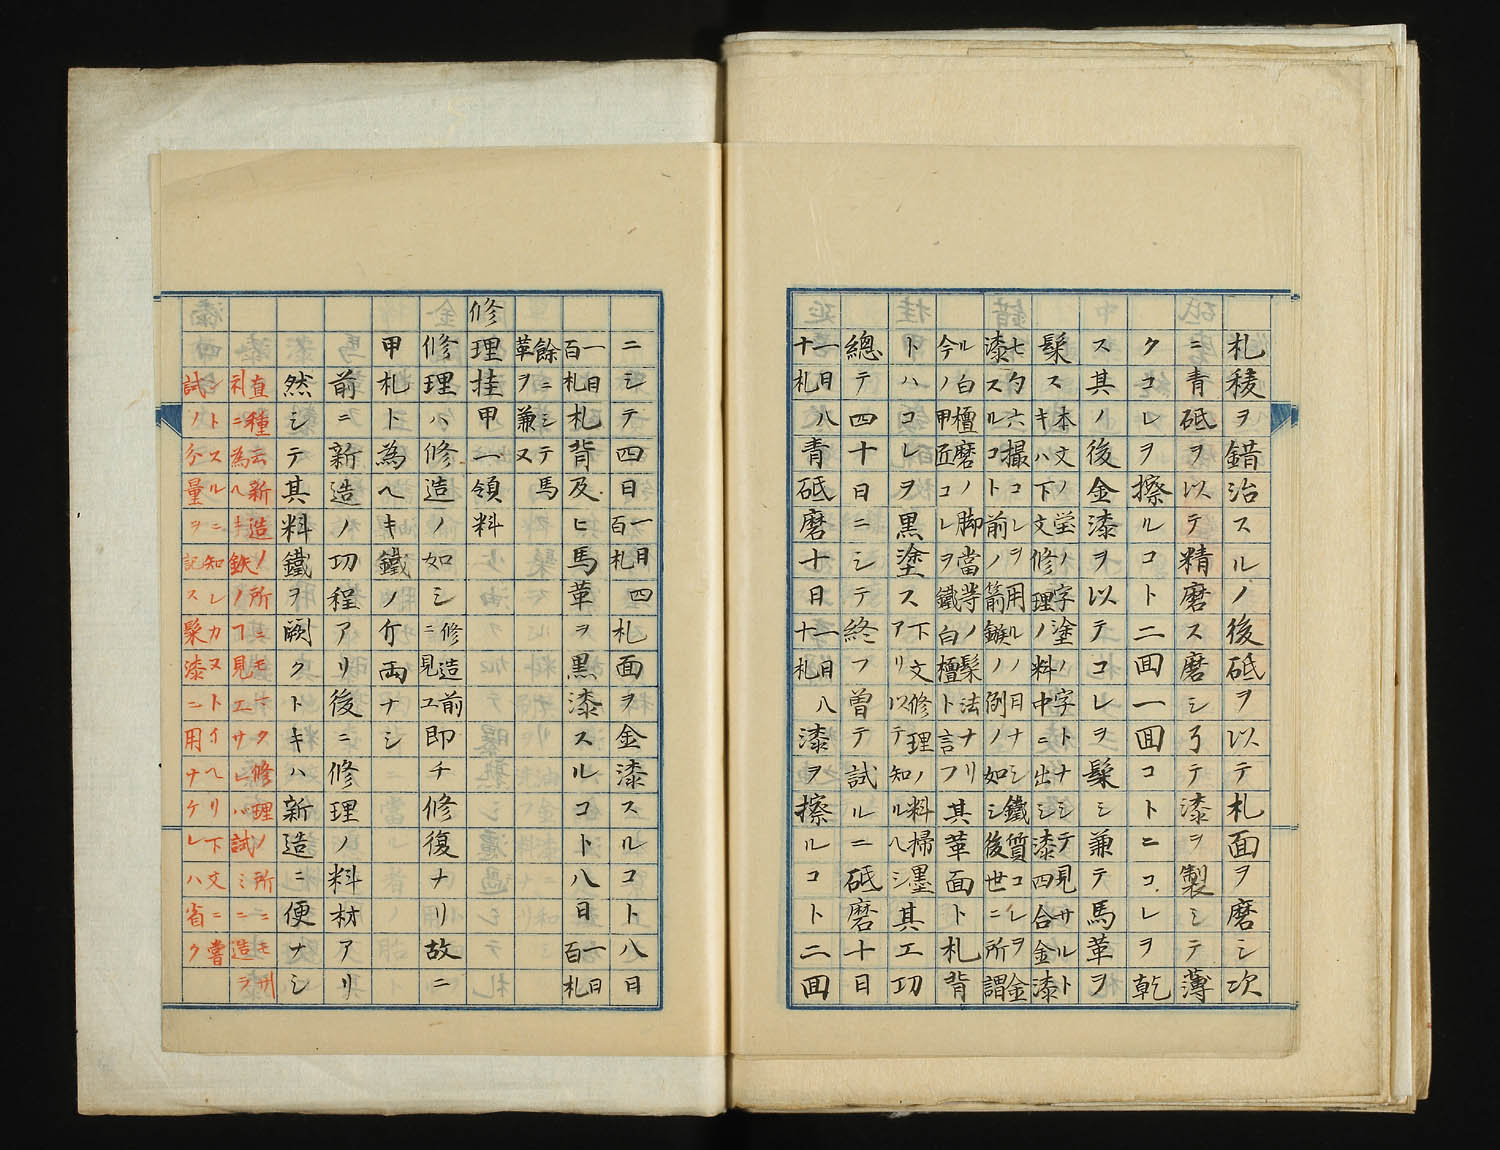 札稜ヲ錯治スルノ後砥ヲ以テ札面ヲ磨シ次
ニ青砥ヲ以テ精磨ス磨シ了テ漆ヲ製シテ薄
クコレヲ擦ルコト二回一回コトニコレヲ乾
ス其ノ後金漆ヲ以テコレヲ髹シ兼テ馬革ヲ
髹ス
本文ノ塋ノ字塗ノ字トナシテ見サルト
キハ下文修理ノ料中ニ出シ漆四合金漆
七勺六撮コレヲ用ルノ月ナシ鐵質コレヲ金
漆スルコト前ノ箭鏃ノ例ノ如シ後世ニ所謂
ル白檀磨ノ脚當等ノ髹法ナリ
今ノ甲匠コレヲ鐵白檀ト言フ
其革面ト札背
トハコレヲ黒塗ス
下文修理ノ料掃墨
アリ以テ知ルヘシ
其工功
總テ四十日ニシテ終フ曽テ試ルニ砥磨十日
一日八
十札
青砥磨十日
一日八
十札
漆ヲ擦ルコト二回
ニシテ四日
一日四
百札
札面ヲ金漆スルコト八日
一日
百札
札背及ヒ馬革ヲ黒漆スルコト八日
一日
百札
餘ニシテ馬
革ヲ兼又
修理挂甲一領料
修理ハ修造ノ如シ
修造前
ニ見エ
即チ修復ナリ故ニ
甲札ト為ヘキ鐵ノ斤両ナシ
前ニ新造ノ功程アリ後ニ修理ノ料材アリ
然シテ其料鐵ヲ闕クトキハ新造ニ便ナシ
直種云新造ノ所ニモナク修理ノ所ニモ
札ニ為ヘキ鉄ノ見エサレハ試ミニ造ラ
ントスルニ知レカヌトイヘリ下文ニ嘗
試ノ分量ヲ記ス髹漆ニ用ナケレハ省ク